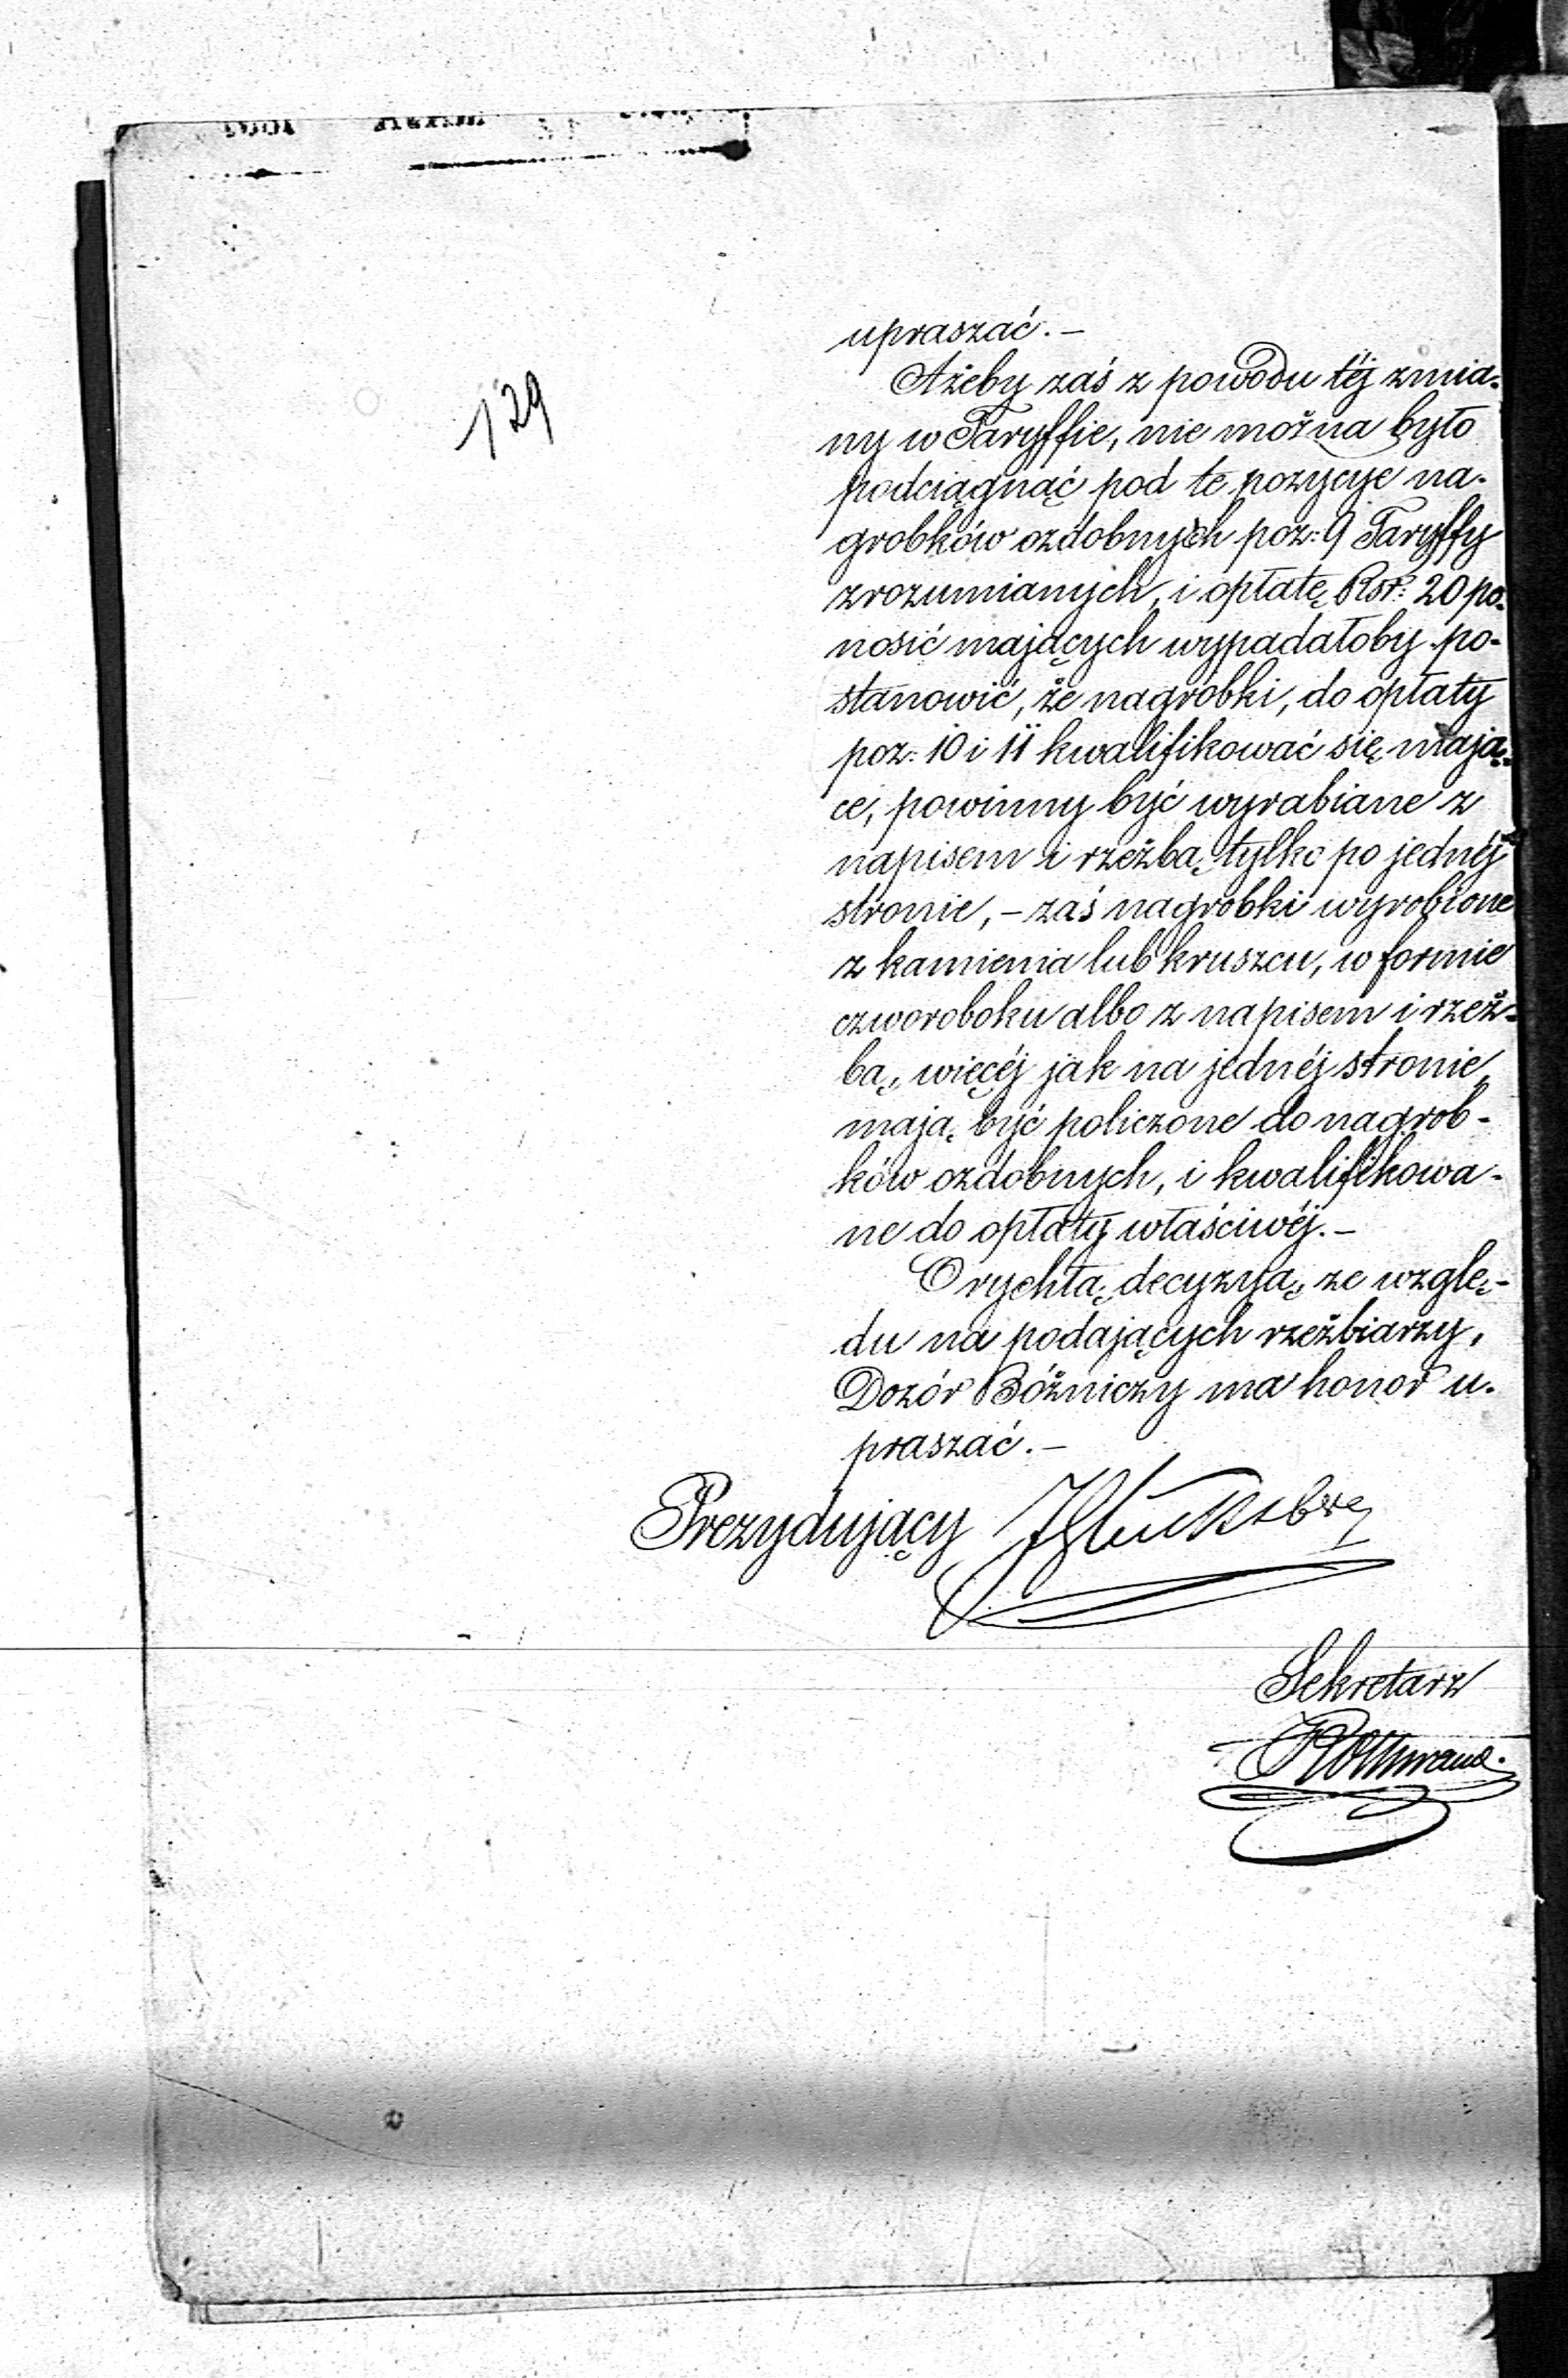 129
upraszać. –
Ażeby zaś z powodu téj zmia-
ny w Taryffie, nie można było
podciągnąć pod te pozycye na-
grobków ozdobnych poz: 9 Taryffy
zrozumianych, i opłatę Rsr: 20 po-
nosić mających wypadałoby po-
stanowić, że nagrobki, do opłaty
poz: 10 i 11 kwalifikować się mają-
ce, powinny być wyrabiane z
napisem i rzeźbą tylko po jednéj
stronie, – zaś nagrobki wyrobione
z kamienia lub kruszcu, w formie
czworoboku albo z napisem i rzeź-
bą, więcéj jak na jednéj stronie,
mają być policzone do nagrob-
ków ozdobnych, i kwalifikowa-
ne do opłaty właściwéj. –
O rychłą decyzyą, ze wzglę-
du na podających rzeźbiarzy,
Dozór Bóżniczy ma honor u-
praszać. –
Prezydujący
Sekretarz